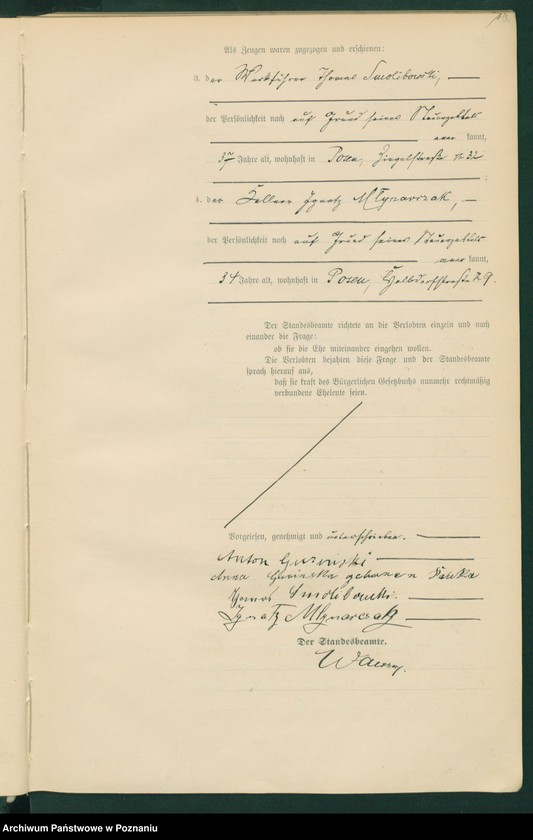 Als Zeugen waren zugezogen und erschienen:
3. der Werkführer Thomas Smolibowski,
der Persönlichkeit nach auf Grund seines Steuerzettels
kannt,
37 Jahre alt, wohnhaft in Posen, Ziegelstraße № 32
4. der Kellner Ignatz Młynarczak,
der Persönlichkeit nach auf Grund seines Steuerzettels
kannt,
34 Jahre alt, wohnhaft in Posen, 9.
Der Standesbeamte richtete an die Verlobten einzeln und nach
einander die Frage:
ob sie die Ehe miteinander eingehen wollen.
Die Verlobten bejahten diese Frage und der Standesbeamte
sprach hierauf aus,
daß sie kraft des Bürgerlichen Gesetzbuchs nunmehr rechtmäßig
verbundene Eheleute seien.
Vorgelesen, genehmigt und unterschrieben.
Anton
Anna geborene
Smolibowski.
Ignatz Mlynarczak
Der Standesbeamte.
Archiwum Państwowe w Poznaniu